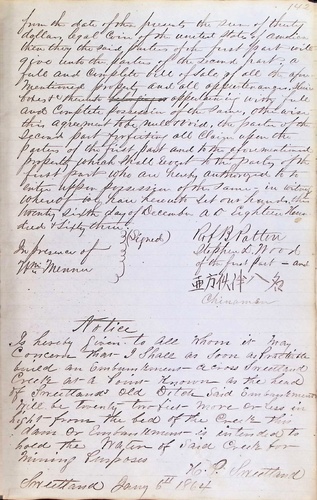 143
from the date of these presents the sum of thirty
dollars legal Coin of the united States of america
then they the said parties of the first part will
give unto the parties of the second part, a
full and Complete bill of Sale of all the afore
Mentioned property and all appurtenances, there
appertaining with full
and Complete possession of the Same, otherwise
this agreement to be null & void, the parties of the
Second part forfeiting all Claim upon the
parties of the first part and to the forementioned
property which shall revert to the party of the
first part who are hereby authorized to
enter upon possession of the Same. in witness
whereof we have hereunto Set our hands the
twenty Sixth day of December AD Eighteen Hun
dred & Sixty three
(Signed) Robt B Patton
Stephen L Wood
of the first part - and
In presence of
Wm Mennu
亜方伙伴八名
Chinaman
Notice
Is hereby given to all Whom it May
Concern that I Shall as Soon as possible
build an Embankment across Sweetland
Creek at a Point Known as the head
of Sweetlands Old Ditch Said Embankment
Will be twenty two feet more or less in
hight from the bed of the Creek this
dam or Embankment is intended to
hold the Water of Said Creek for
Mining Purposes
H. P. Sweetland
Sweetland Jany 6th 1864